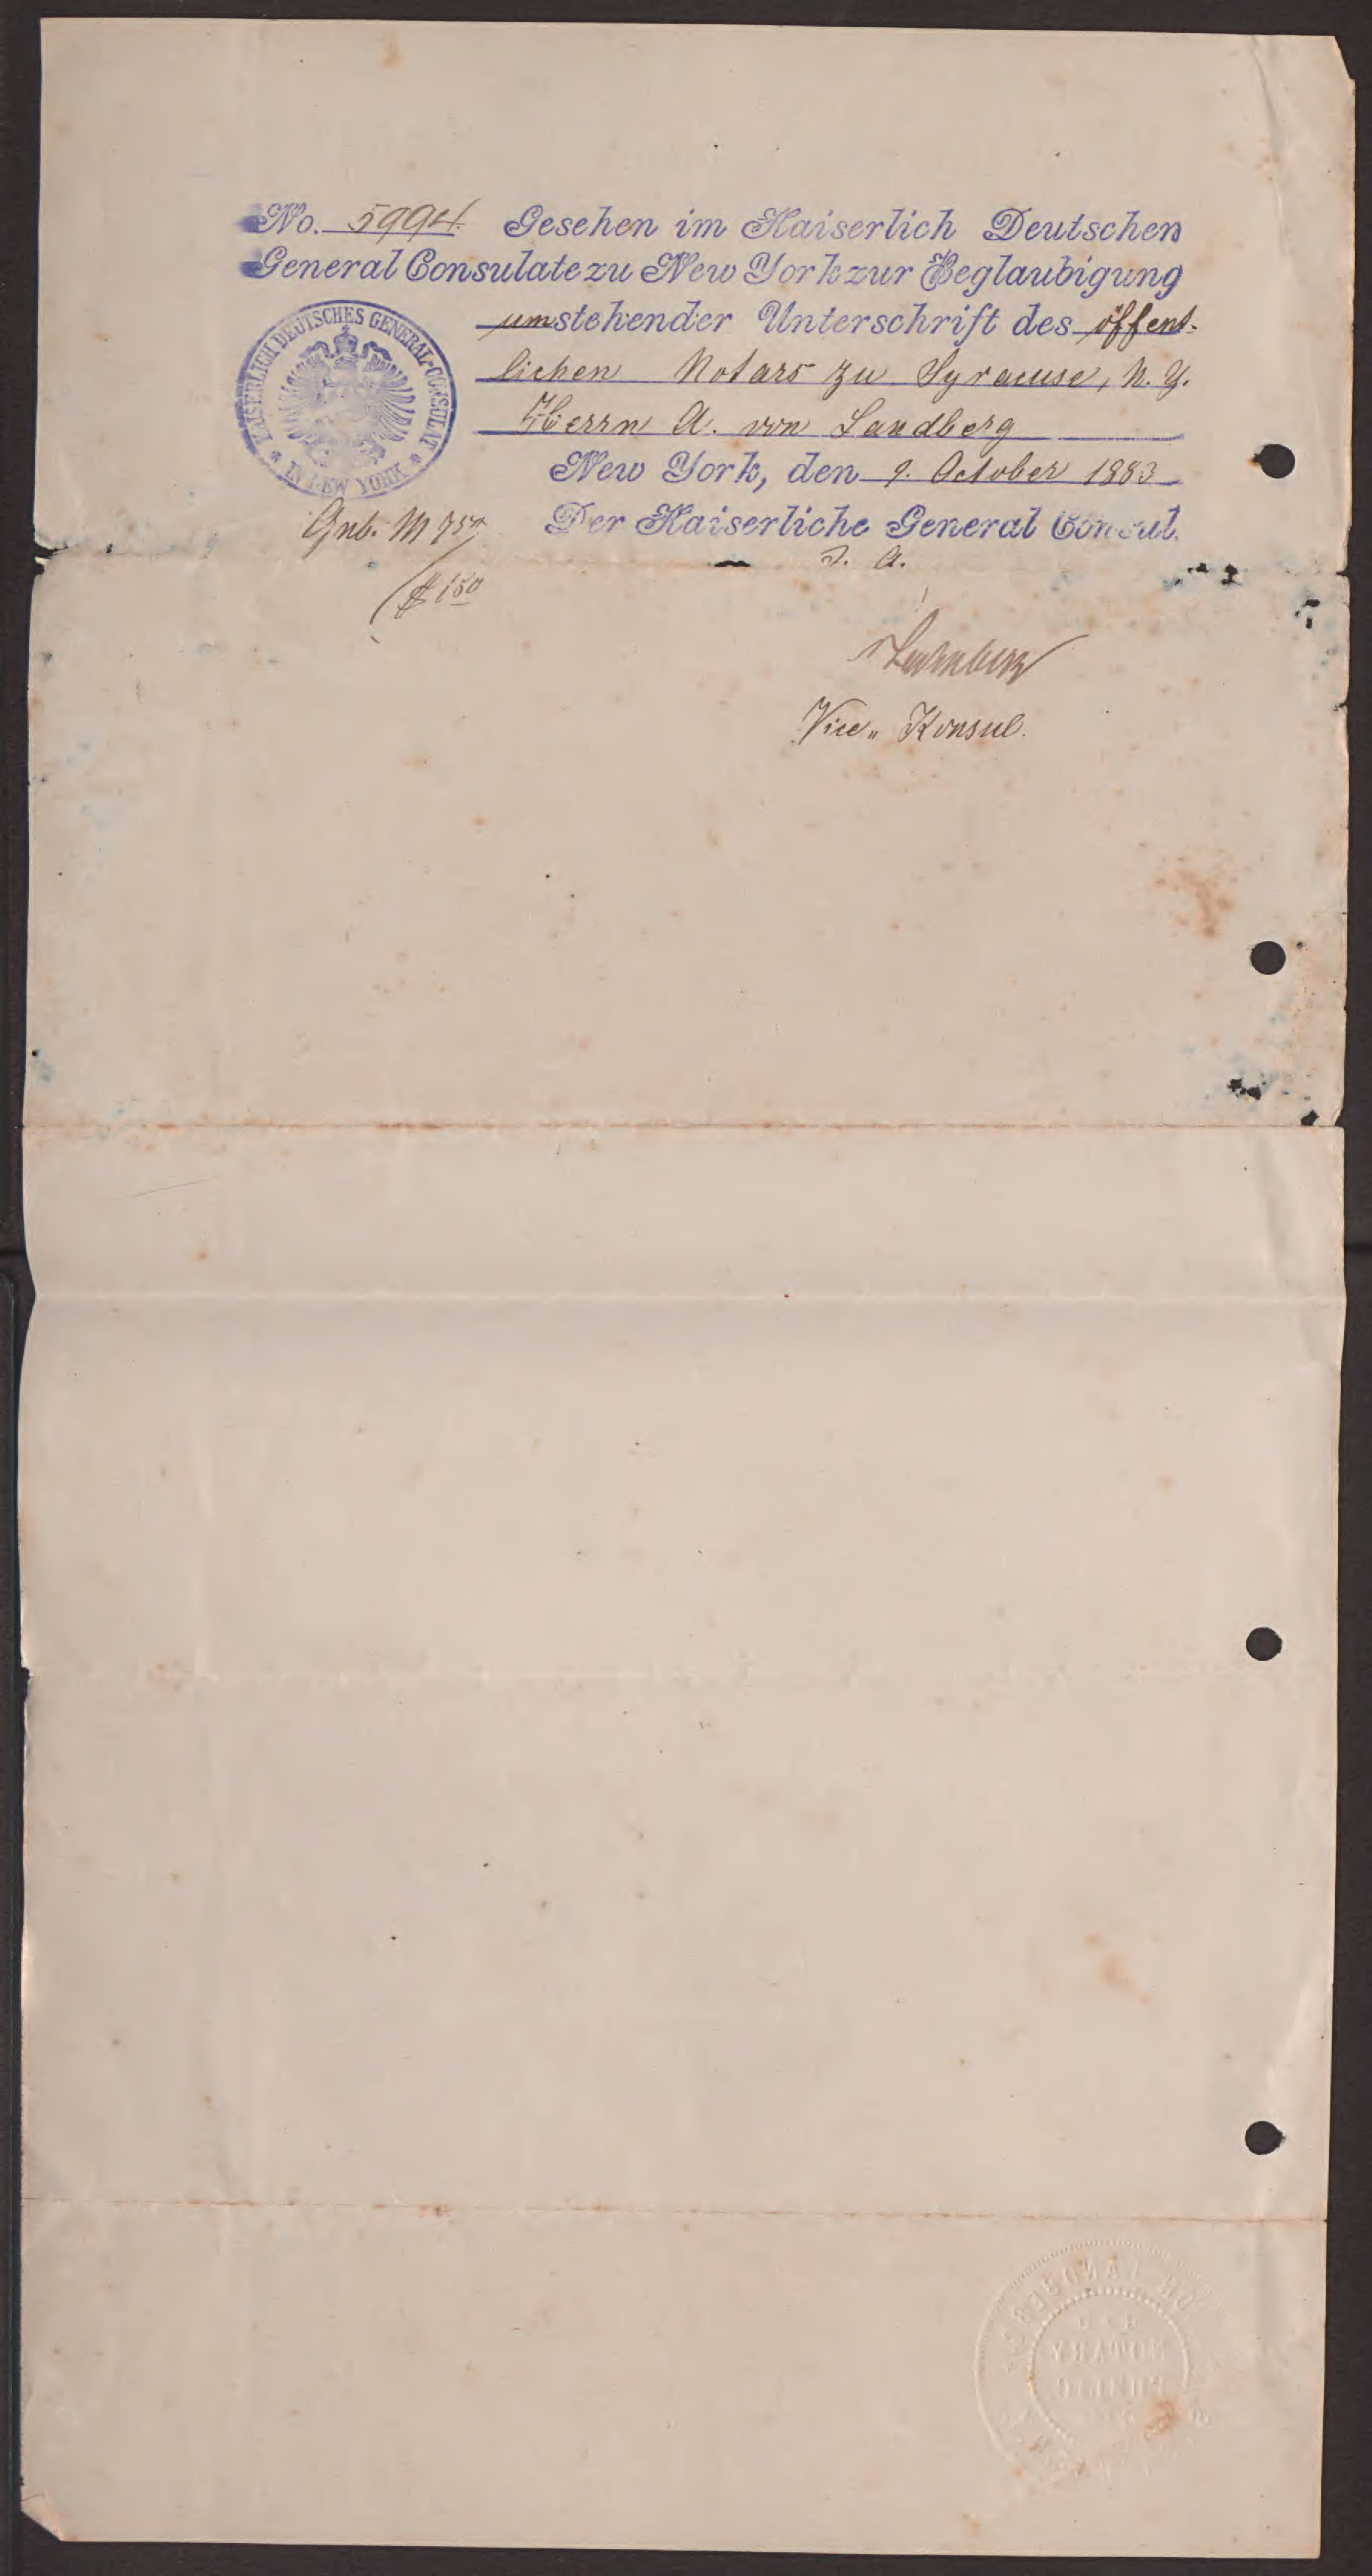 No. 5994. Gesehen im Kaiserlich Deutschen
General Consulate zu New York zur Beglaubigung
umstehender Unterschrift des öffent-
lichen Notars zu Syracuse, N. Y.
Herrn A. von Landberg
New York, den 9. October 1883
Der Kaiserliche General Consul.
I. A.
KAISERLICH DEUTSCHES GENERAL-CONSULAT
IN NEW YORK
Geb. M 7 50
$ 1 50
Vice-Konsul.
VON LANDBERG
NOTARY
PUBLIC